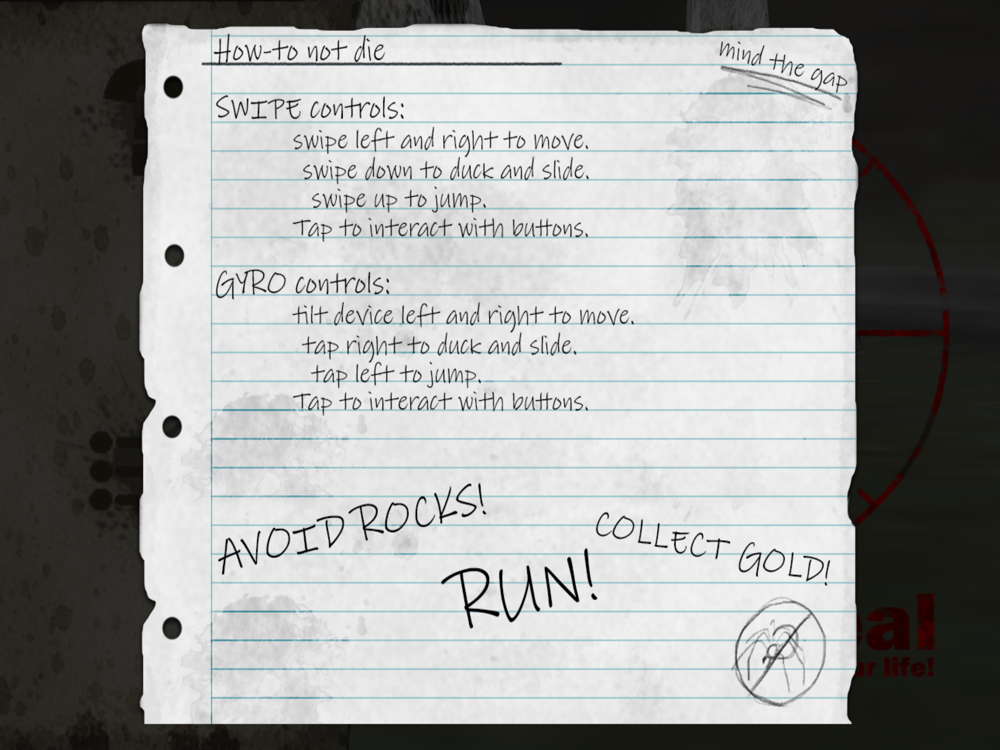 How-to not die
mind the gap
SWIPE controls:
swipe left and right to move.
swipe down to duck and slide.
swipe up to jump.
Tap to interact with buttons.
GYRO controls:
tilt device left and right to move.
tap right to duck and slide.
tap left to jump.
Tap to interact with buttons.
AVOID ROCKS!
COLLECT GOLD!
RUN!
life!